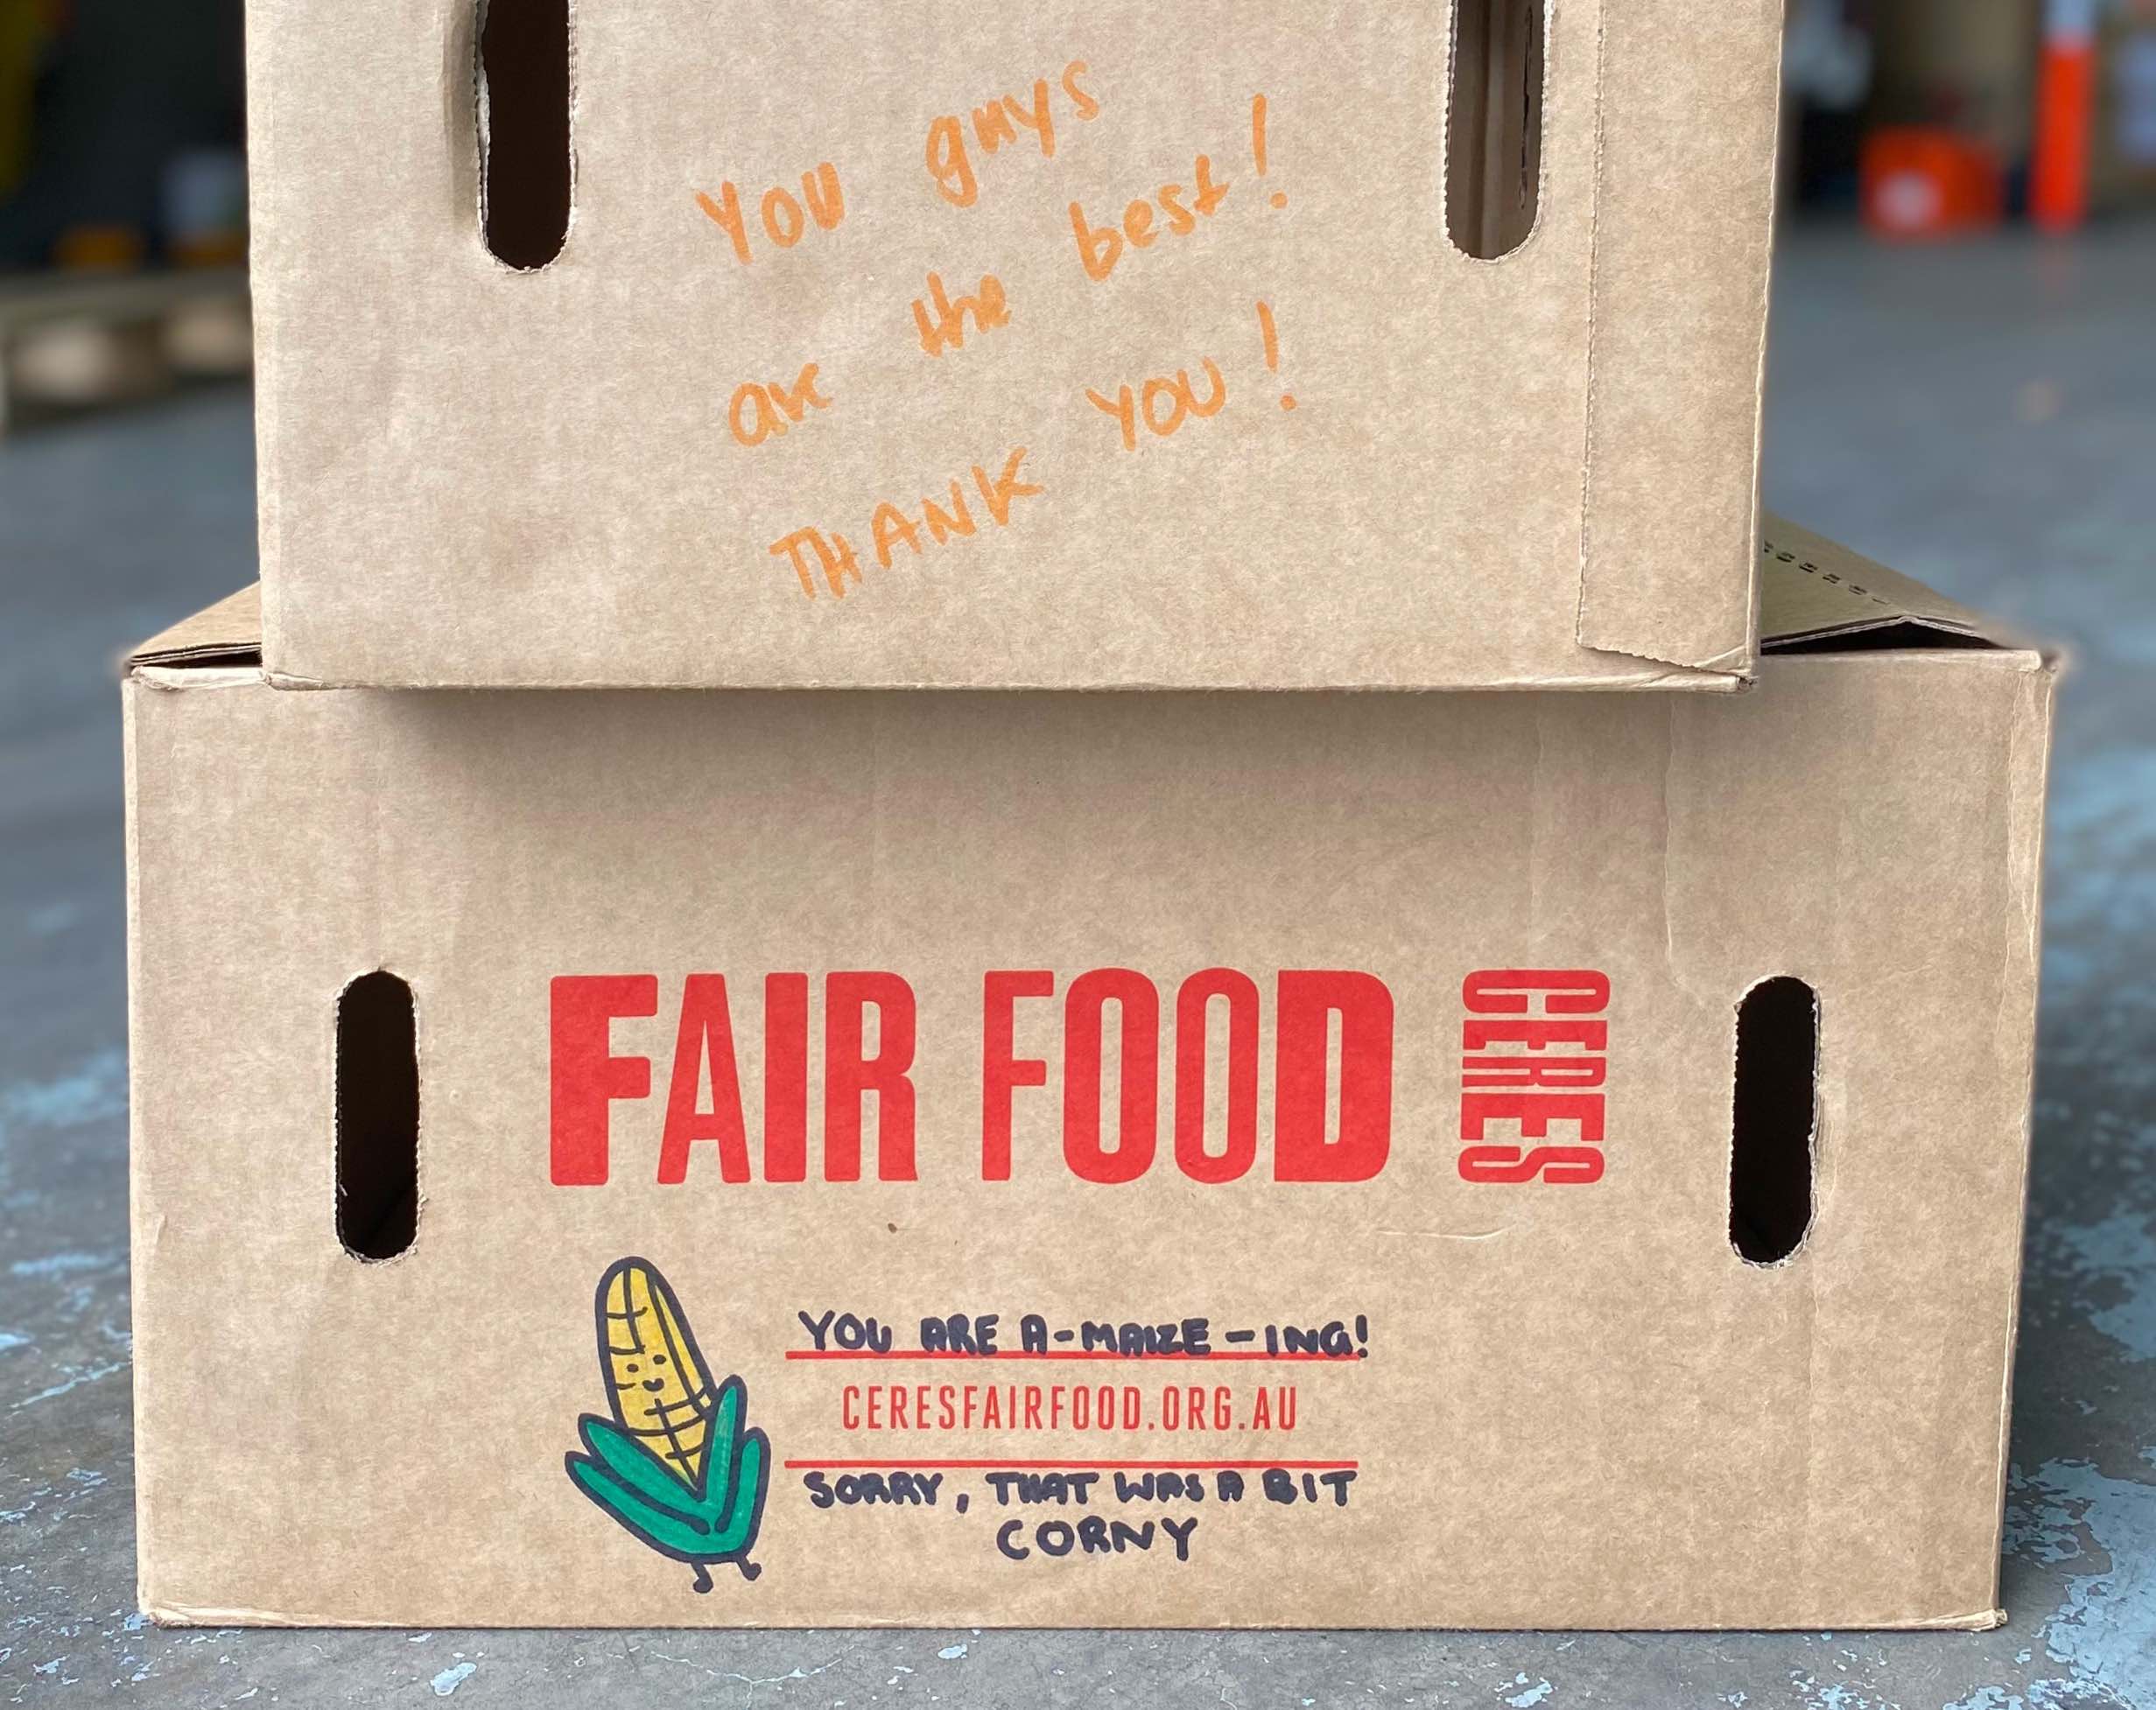 You guys
are the best!
THANK YOU!
FAIR FOOD CERES
YOU ARE A-MAIZE-ING!
CERESFAIRFOOD.ORG.AU
SORRY, THAT WAS A BIT
CORNY